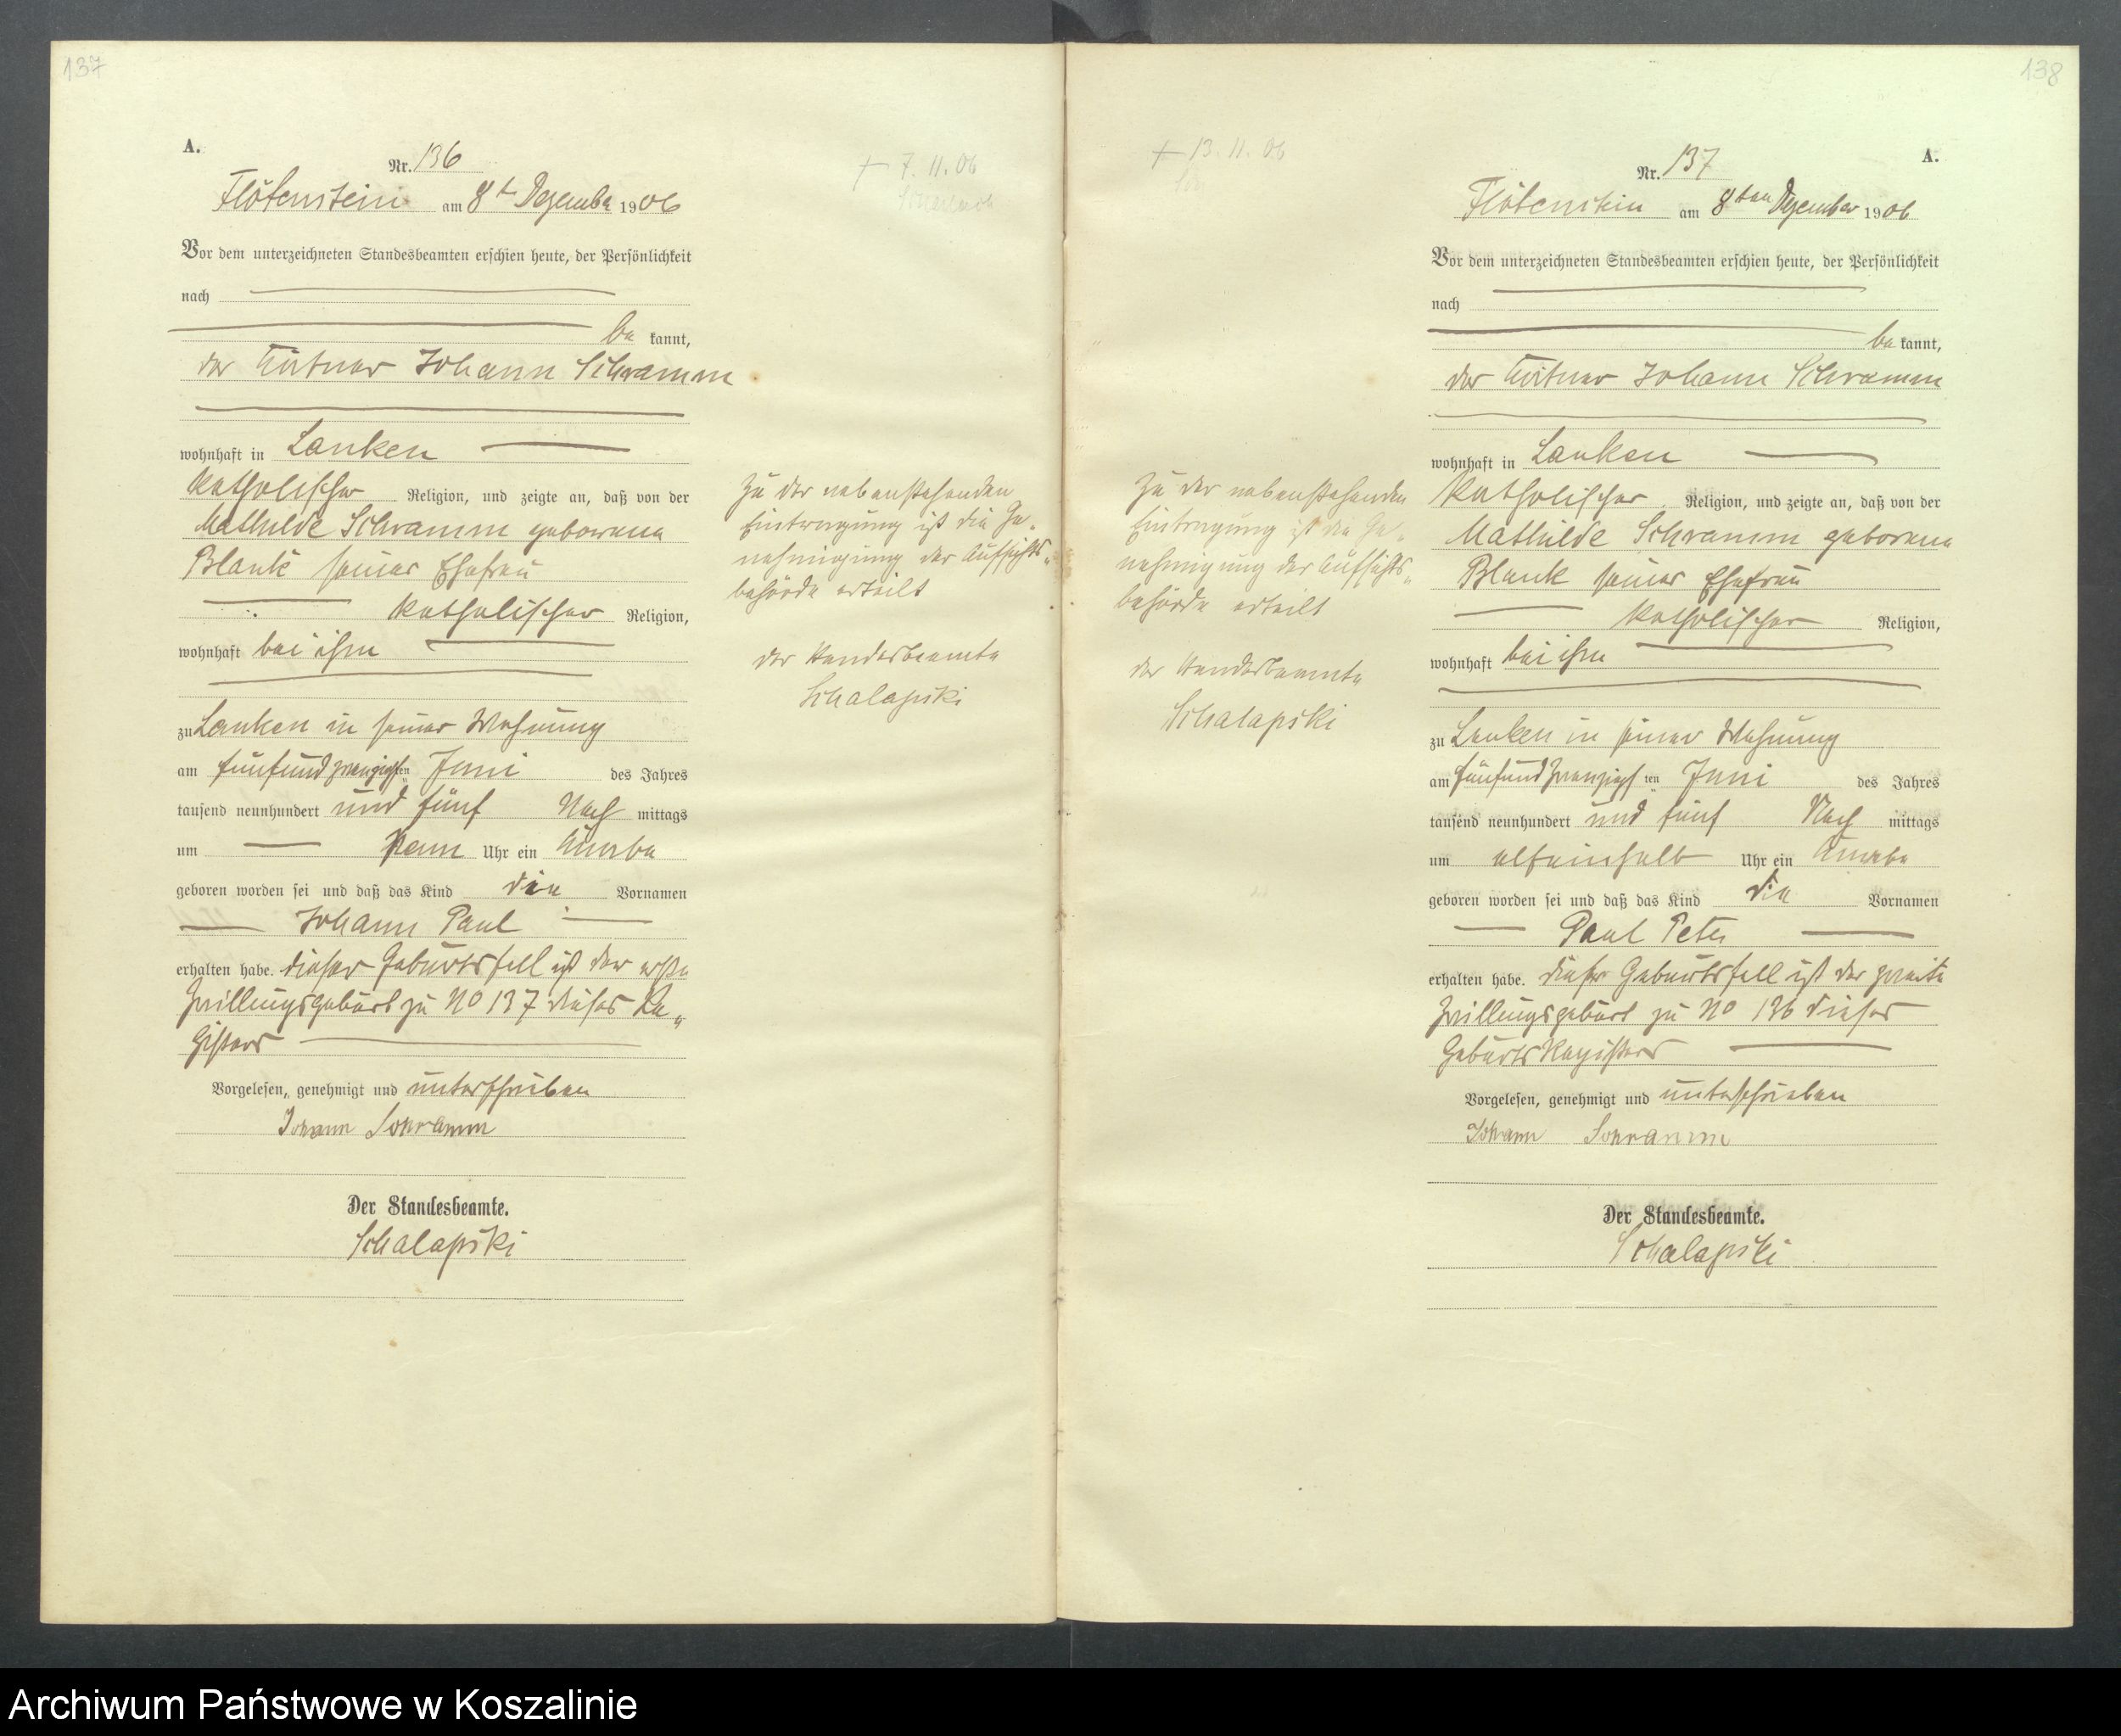 137
A.
Nr. 136
Flötenstein am 8ten Dezember 1906
Vor dem unterzeichneten Standesbeamten erschien heute, der Persönlichkeit
nach
be kannt,
der Kätner Johann Schramm
wohnhaft in Lanken
katholischer Religion, und zeigte an, daß von der
Mathilde Schramm geborene
Blank seiner Ehefrau
katholischer Religion,
wohnhaft bei ihm
zu Lanken in seiner Wohnung
am fünfundzwanzigsten Juni des Jahres
tausend neunhundert und fünf Nach mittags
um Uhr ein Knabe
geboren worden sei und daß das Kind die Vornamen
Johann Paul
erhalten habe. Dieser Geburtsfall ist der erste
Zwillingsgeburt zu No 137 dieses Re„
gisters
Vorgelesen, genehmigt und unterschrieben
Johann Schramm
Der Standesbeamte.
Schalapski
+ 7. 11. 06
Zu der nebenstehenden
Eintragung ist die Ge„
nehmigung der Aufsichts„
behörde erteilt
der Standesbeamte
Schalapski
138
+ 13. 11. 06
Zu der nebenstehenden
Eintragung ist die Ge„
nehmigung der Aufsichts„
behörde erteilt
der Standesbeamte
Schalapski
A.
Nr. 137
Flötenstein am 8ten Dezember 1906
Vor dem unterzeichneten Standesbeamten erschien heute, der Persönlichkeit
nach
be kannt,
der Kätner Johann Schramm
wohnhaft in Lanken
katholischer Religion, und zeigte an, daß von der
Mathilde Schramm geborene
Blank seiner Ehefrau
katholischer Religion,
wohnhaft bei ihm
zu Lanken in seiner Wohnung
am fünfundzwanzigsten Juni des Jahres
tausend neunhundert und fünf Nach mittags
um elfeinhalb Uhr ein Knabe
geboren worden sei und daß das Kind die Vornamen
Paul Peter
erhalten habe. Dieser Geburtsfall ist der zweite
Zwillingsgeburt zu No 136 dieses
Geburts Registers
Vorgelesen, genehmigt und unterschrieben
Johann Schramm
Der Standesbeamte.
Schalapski
Archiwum Państwowe w Koszalinie